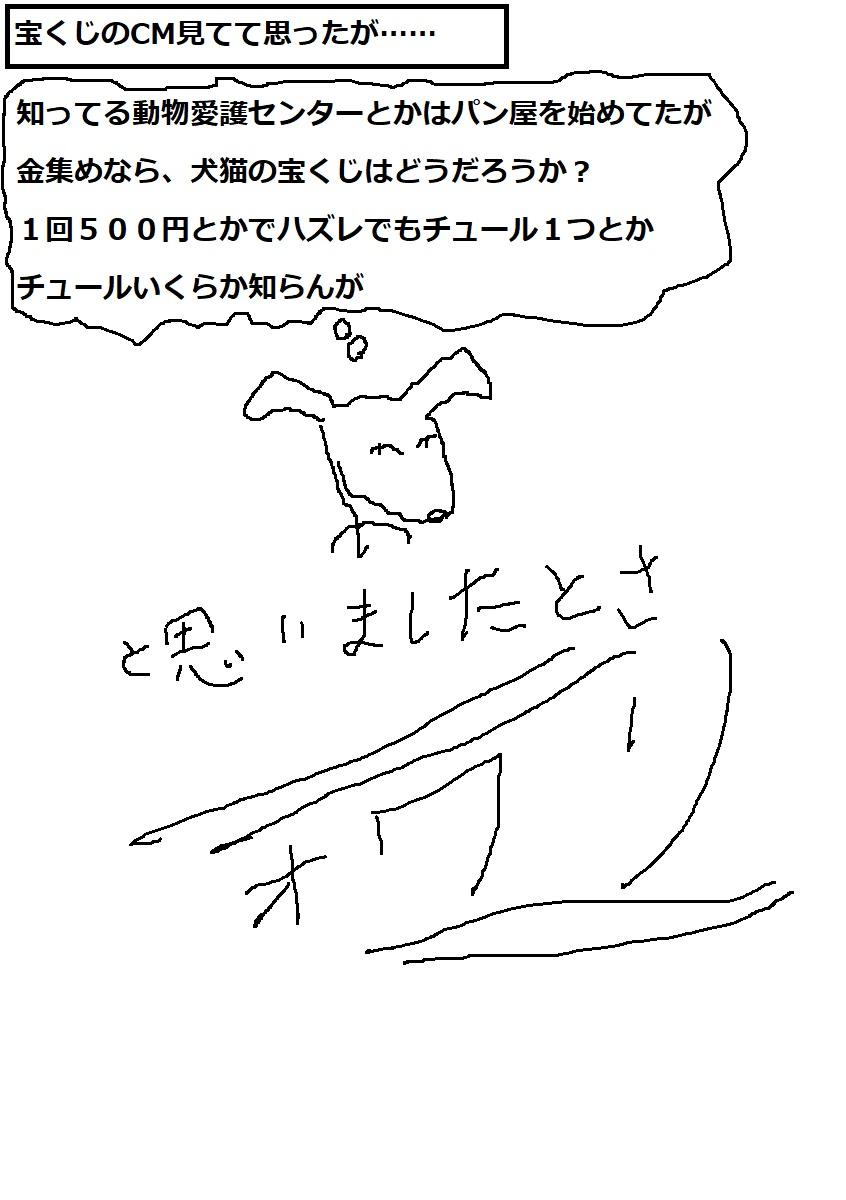 宝くじのCM見てて思ったが……
知ってる動物愛護センターとかはパン屋を始めてたが
金集めなら、犬猫の宝くじはどうだろうか？
１回５００円とかでハズレでもチュール１つとか
チュールいくらか知らんが
と思いましたとさ
オワリ